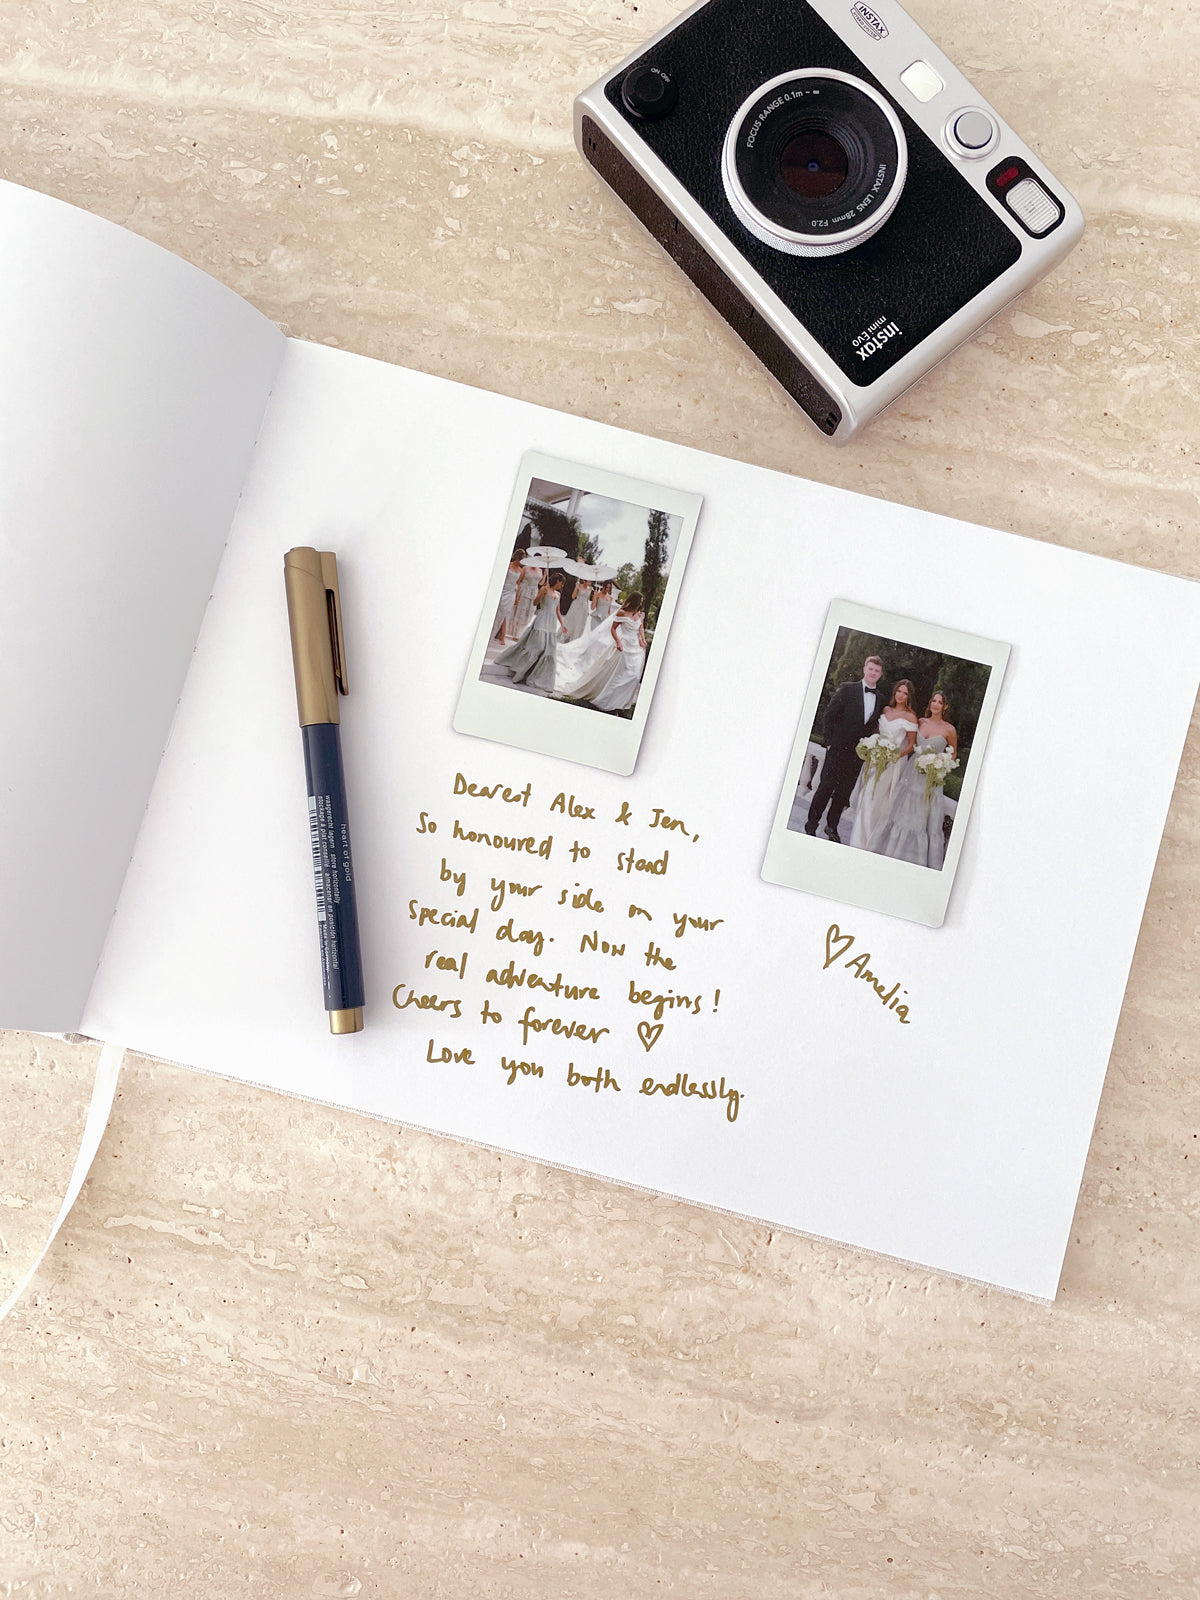 INSTAX
ON OFF
FOCUS RANGE 0.1m ~ ∞
INSTAX LENS 28mm F2.0
instax
mini Evo
heart of gold
waagerecht lagern · store horizontally
stockage à plat conseillé · almacenar en posición horizontal
Dearest Alex & Jen,
So honoured to stand
by your side on your
special day. Now the
real adventure begins!
Cheers to forever ♡
Love you both endlessly.
♡ Amelia